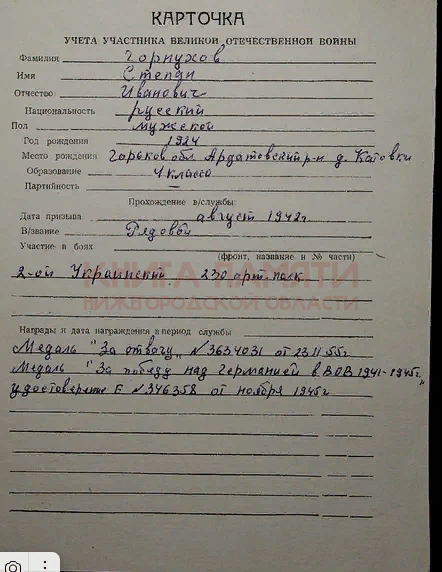 КАРТОЧКА
УЧЕТА УЧАСТНИКА ВЕЛИКОЙ ОТЕЧЕСТВЕННОЙ ВОЙНЫ
Фамилия Горпухов
Имя Степан
Отчество Иванович
Национальность русский
Пол мужской
Год рождения 1924
Место рождения Горьков обл Ардатовский р-н д. Котовки
Образование 4 класса
Партийность —
Прохождение в/службы:
Дата призыва август 1942г.
В/звание Рядовой
Участие в боях
(фронт, название и № части)
2-ой Украинский 230 арт. полк
КНИГА ПАМЯТИ
НИЖЕГОРОДСКОЙ ОБЛАСТИ
Награды и дата награждения в период службы
Медаль "За отвагу" N 3634031 от 23.11.55г
Медаль "За победу над Германией в ВОВ 1941-1945г"
удостоверение Е N 346358 от ноября 1945г